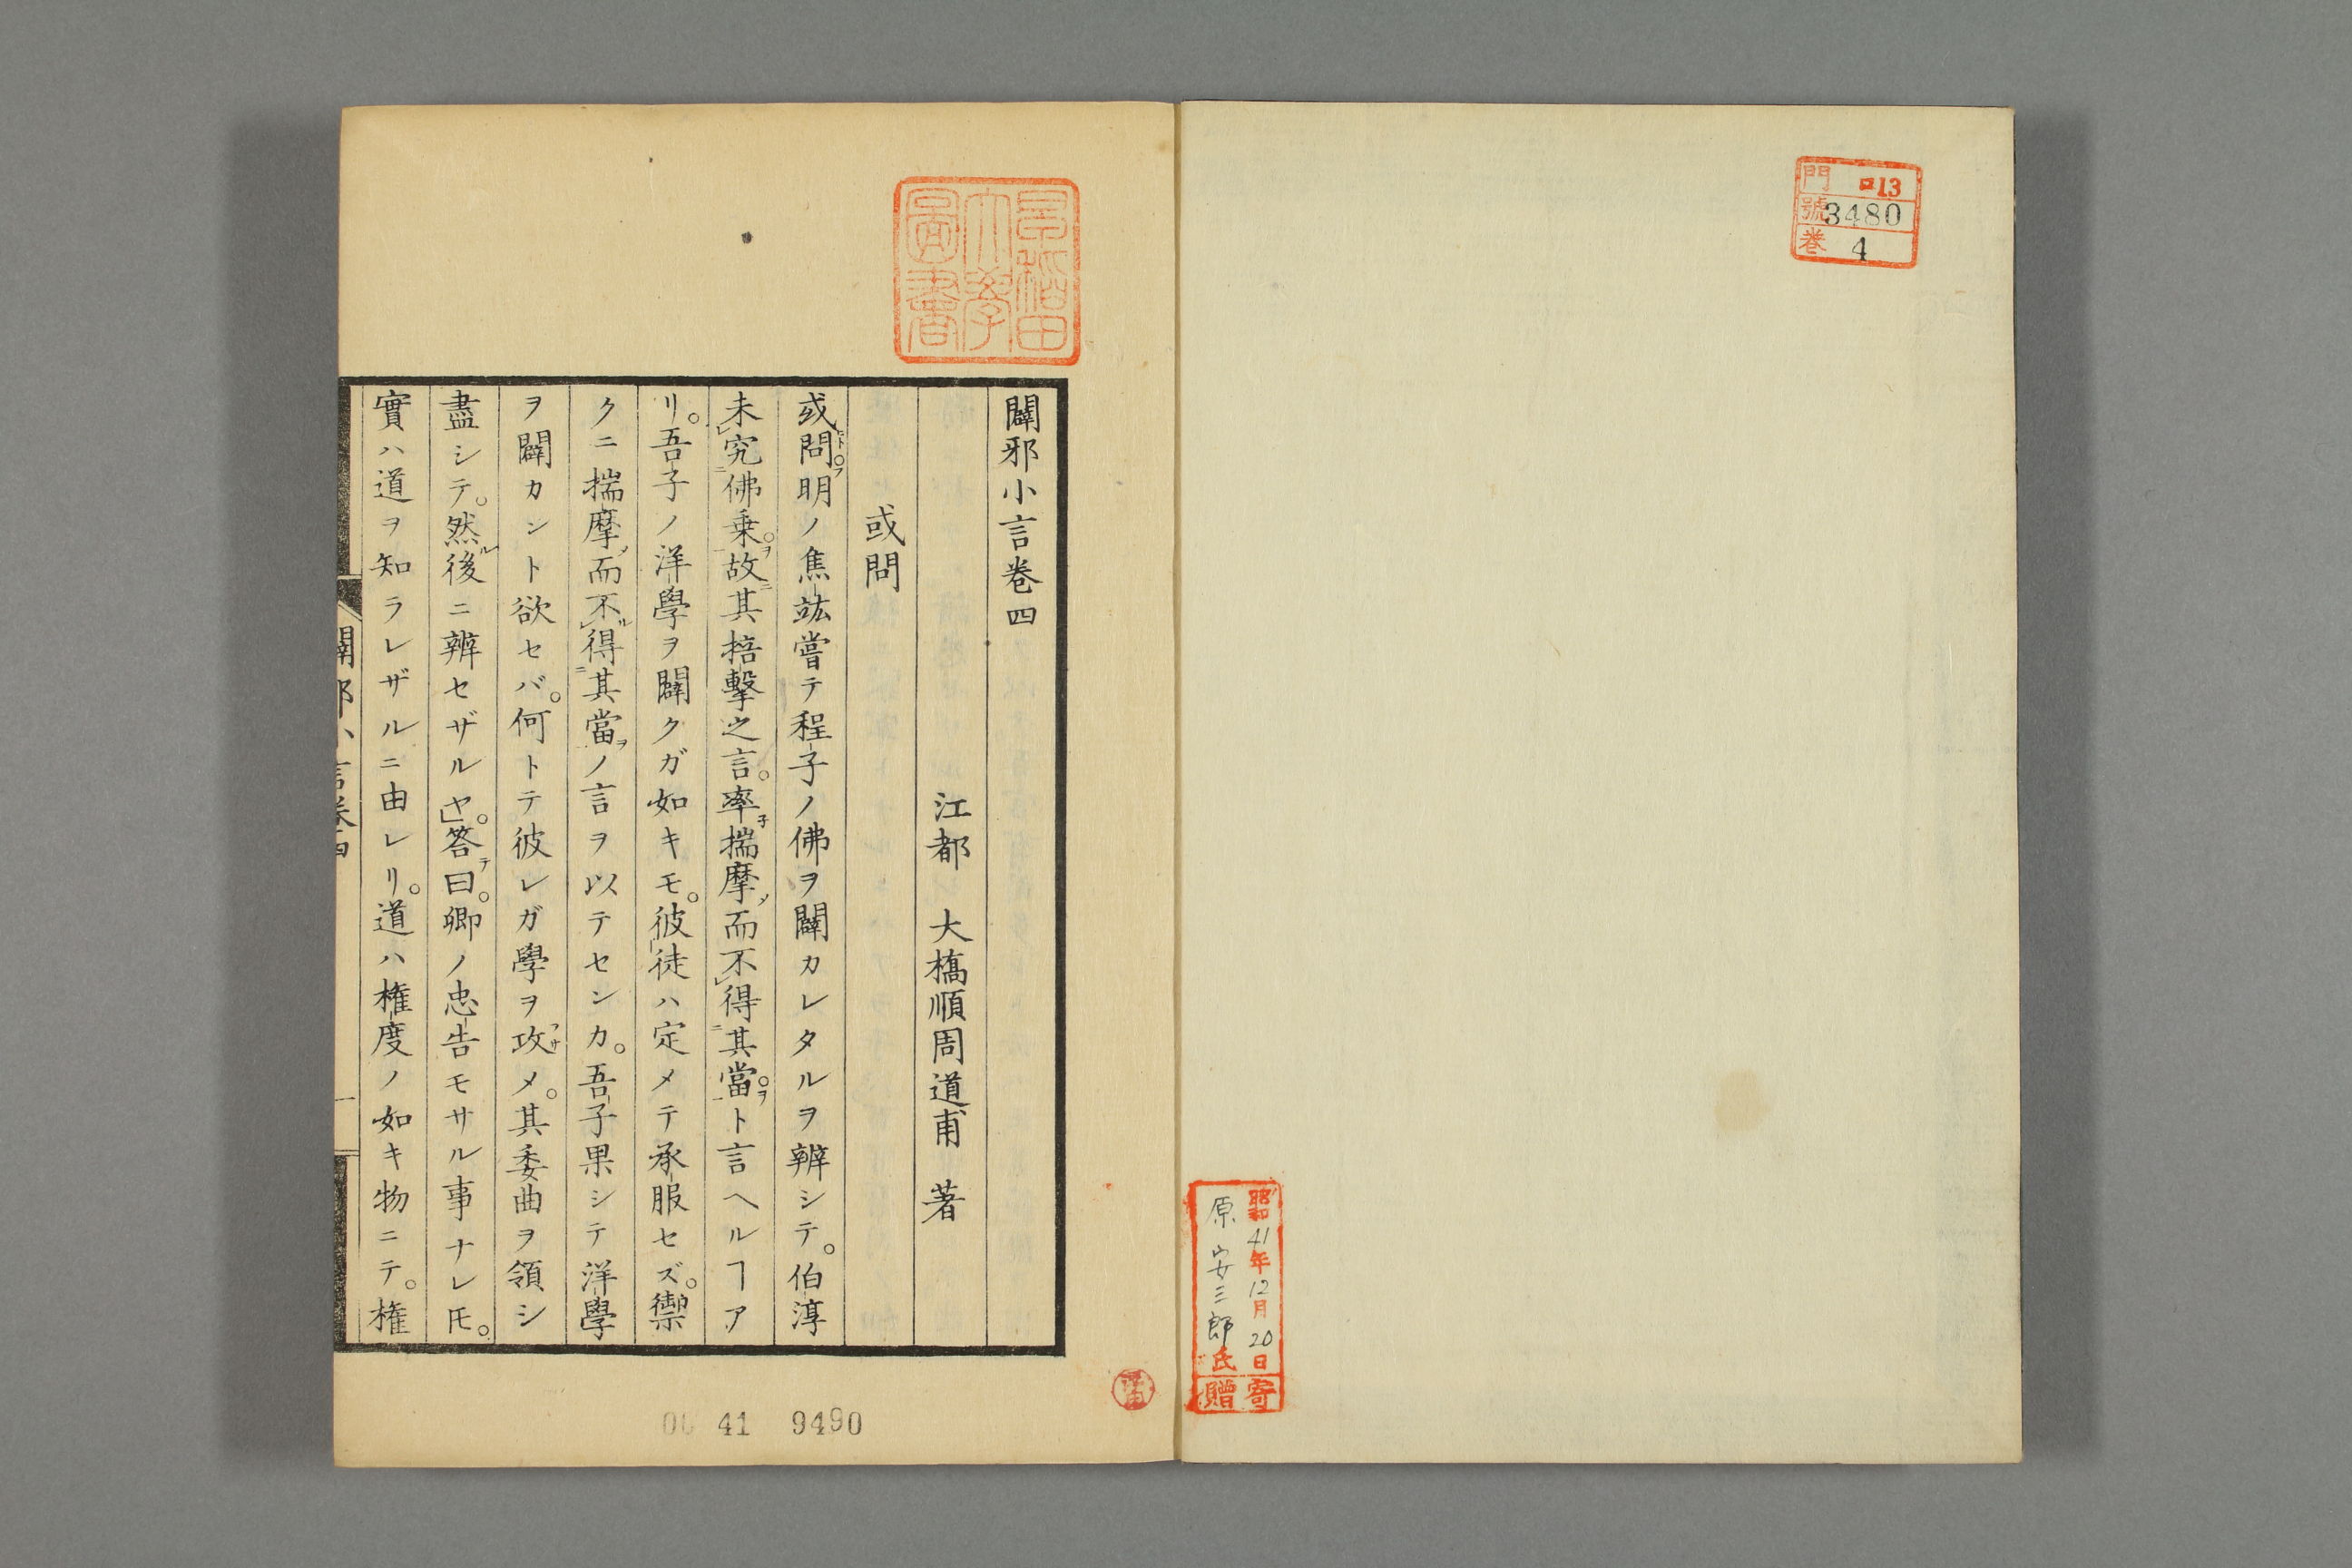 門 ロ13
號 3480
巻 4
昭41年12月20日
原安三郎氏
寄贈
早稲田
大學
圖書
闢邪小言巻四
江都 大橋順周道甫 著
或問
或問フ。明ノ焦竑嘗テ程子ノ佛ヲ闢カレタルヲ辨シテ。伯淳
未究佛乗。故其掊擊之言。率揣摩而不得其當。ト言ヘルヿア
リ。吾子ノ洋學ヲ闢クガ如キモ。彼徒ハ定メテ承服セズ。禦
クニ揣摩而不得其當ノ言ヲ以テセンカ。吾子果シテ洋學
ヲ闢カント欲セバ。何トテ彼レガ學ヲ攻メ。其委曲ヲ領シ
盡シテ。然後ニ辨セザルヤ。答曰。卿ノ忠告モサル事ナレ𪜈。
實ハ道ヲ知ラレザルニ由レリ。道ハ権度ノ如キ物ニテ。権
闢邪小言巻四
一
41 9490